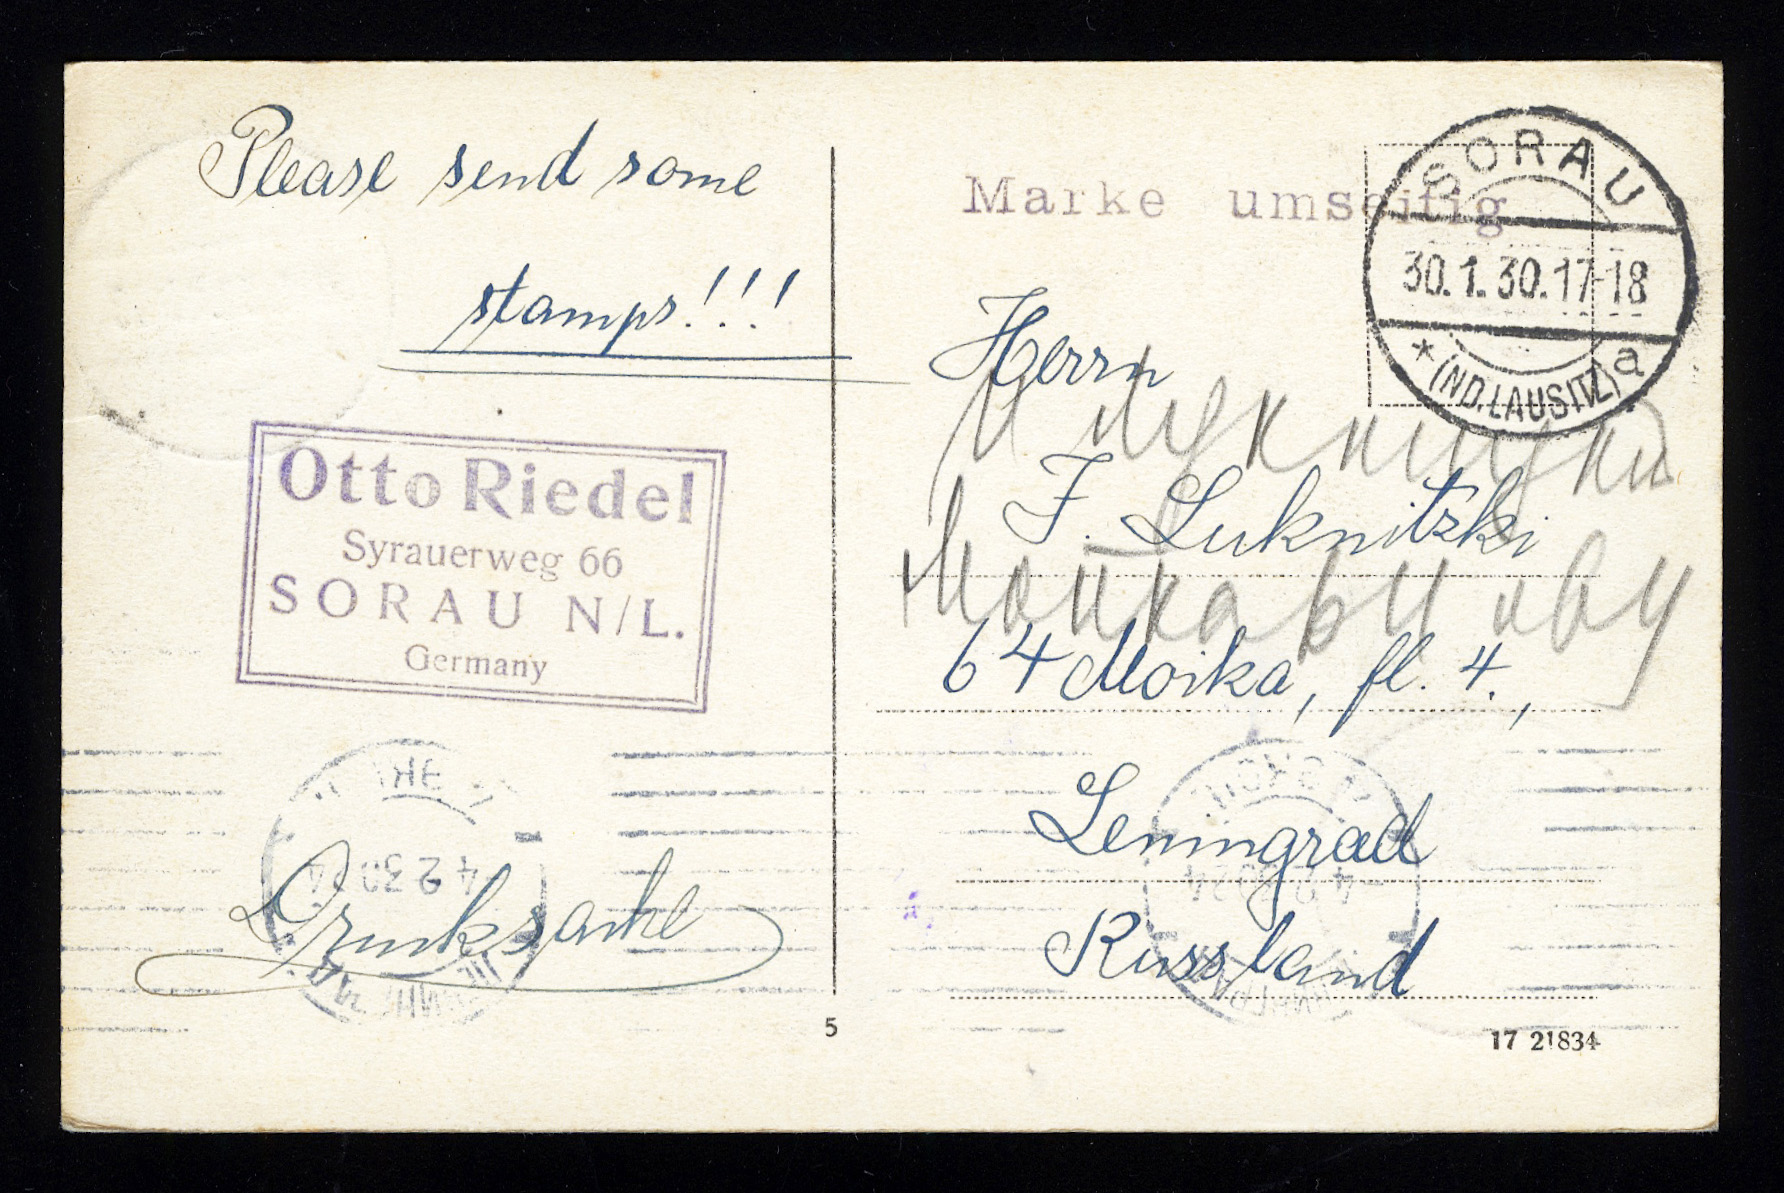 Please send some
stamps!!!
Otto Riedel
Syrauerweg 66
SORAU N/L.
Germany
Drucksache
Marke umseitig
SORAU
30.1.30.17-18
* (ND.LAUSITZ) a
Herrn
J. Luknitzki
64 Moika, fl. 4.,
Leningrad
Russland
4 2 30 24
5
17 21834